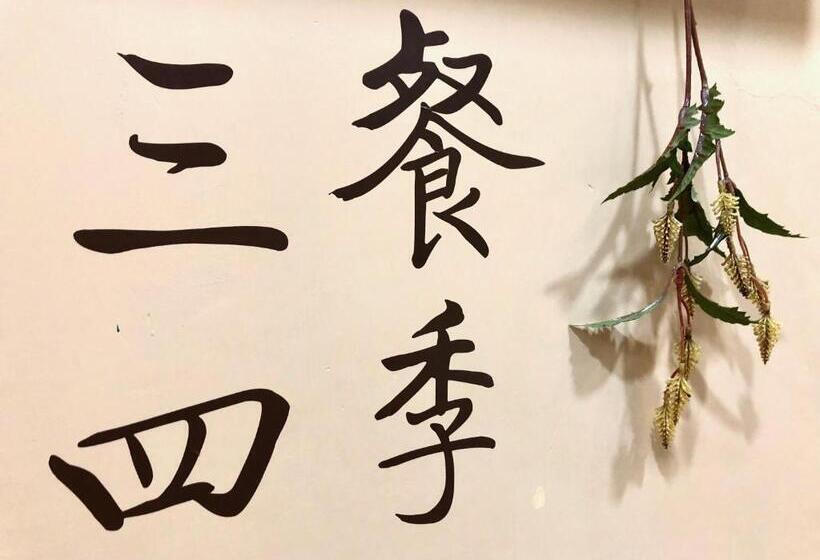 三餐
四季